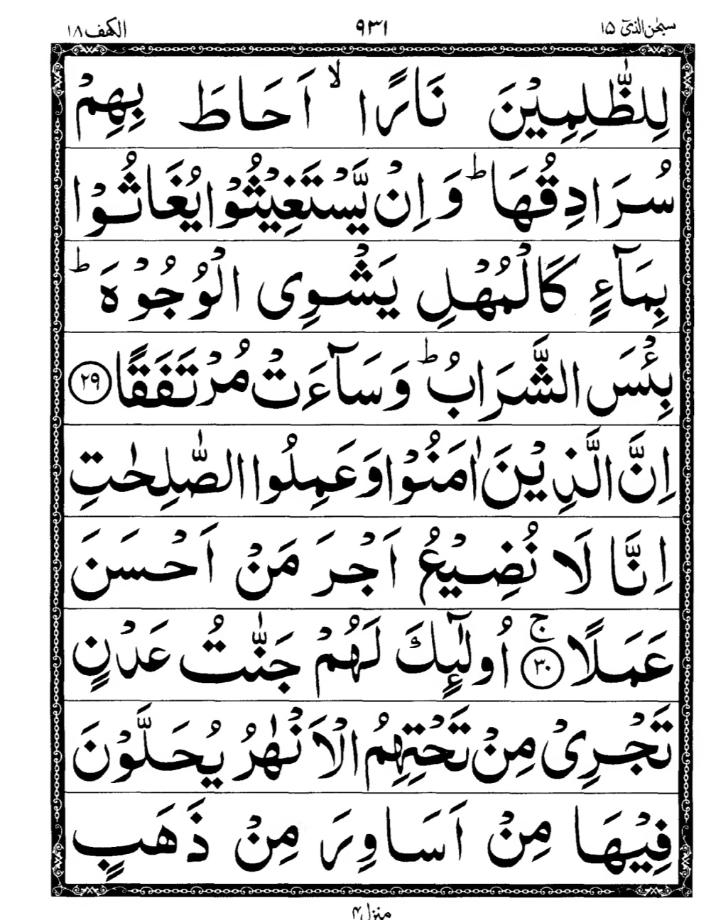 سبحٰن الذیٓ ١٥ ٩٣١ الكهف ١٨
لِلظّٰلِمِيْنَ نَارًا ۙ اَحَاطَ بِهِمْ
سُرَادِقُهَا ؕ وَ اِنْ يَّسْتَغِيْثُوْا يُغَاثُوْا
بِمَآءٍ كَالْمُهْلِ يَشْوِى الْوُجُوْهَ ؕ
بِئْسَ الشَّرَابُ ؕ وَ سَآءَتْ مُرْتَفَقًا ﴿٢٩﴾
اِنَّ الَّذِيْنَ اٰمَنُوْا وَ عَمِلُوا الصّٰلِحٰتِ
اِنَّا لَا نُضِيْعُ اَجْرَ مَنْ اَحْسَنَ
عَمَلًا ۚ ﴿٣٠﴾ اُولٰٓئِكَ لَهُمْ جَنّٰتُ عَدْنٍ
تَجْرِىْ مِنْ تَحْتِهِمُ الْاَنْهٰرُ يُحَلَّوْنَ
فِيْهَا مِنْ اَسَاوِرَ مِنْ ذَهَبٍ
منزل ٤